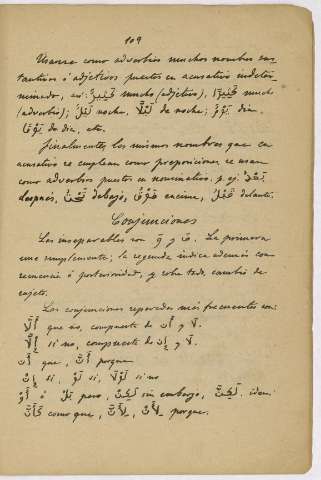 109
Usanse como adverbios muchos nombres sus-
tantivos ó adjetivos puestos en acusativo indeter-
minado, así: كَثِيرٌ mucho (adjetivo), كَثِيرًا mucho
(adverbio); لَيْلٌ noche, لَيْلًا de noche; يَوْمٌ dia,
يَوْمًا de dia, etc.
Finalmente, los mismos nombres que en
acusativo se emplean como preposiciones se usan
como adverbios puestos en nominativo: p. ej. بَعْدُ
después, تَحْتُ debajo, فَوْقُ encima, قَبْلُ delante.
Conjunciones
Las inseparables son وَ y فَ. La primera
une simplemente; la segunda indica además con-
secuencia ó posterioridad, y sobre todo, cambio de
sujeto.
Las conjunciones separadas más frecuentes son:
أَلَّا que no, compuesta de أَنْ y لَا
إِلَّا si no, compuesta de إِنْ y لَا.
أَنْ que, أَنَّ porque
إِنْ si, لَوْ si, لَوْلَا si no
أَوْ ó بَلْ pero, لٰكِنْ sin embargo, لٰكِنَّ idem
كَأَنَّ como que, لِأَنَّ, لِأَنَّ porque.